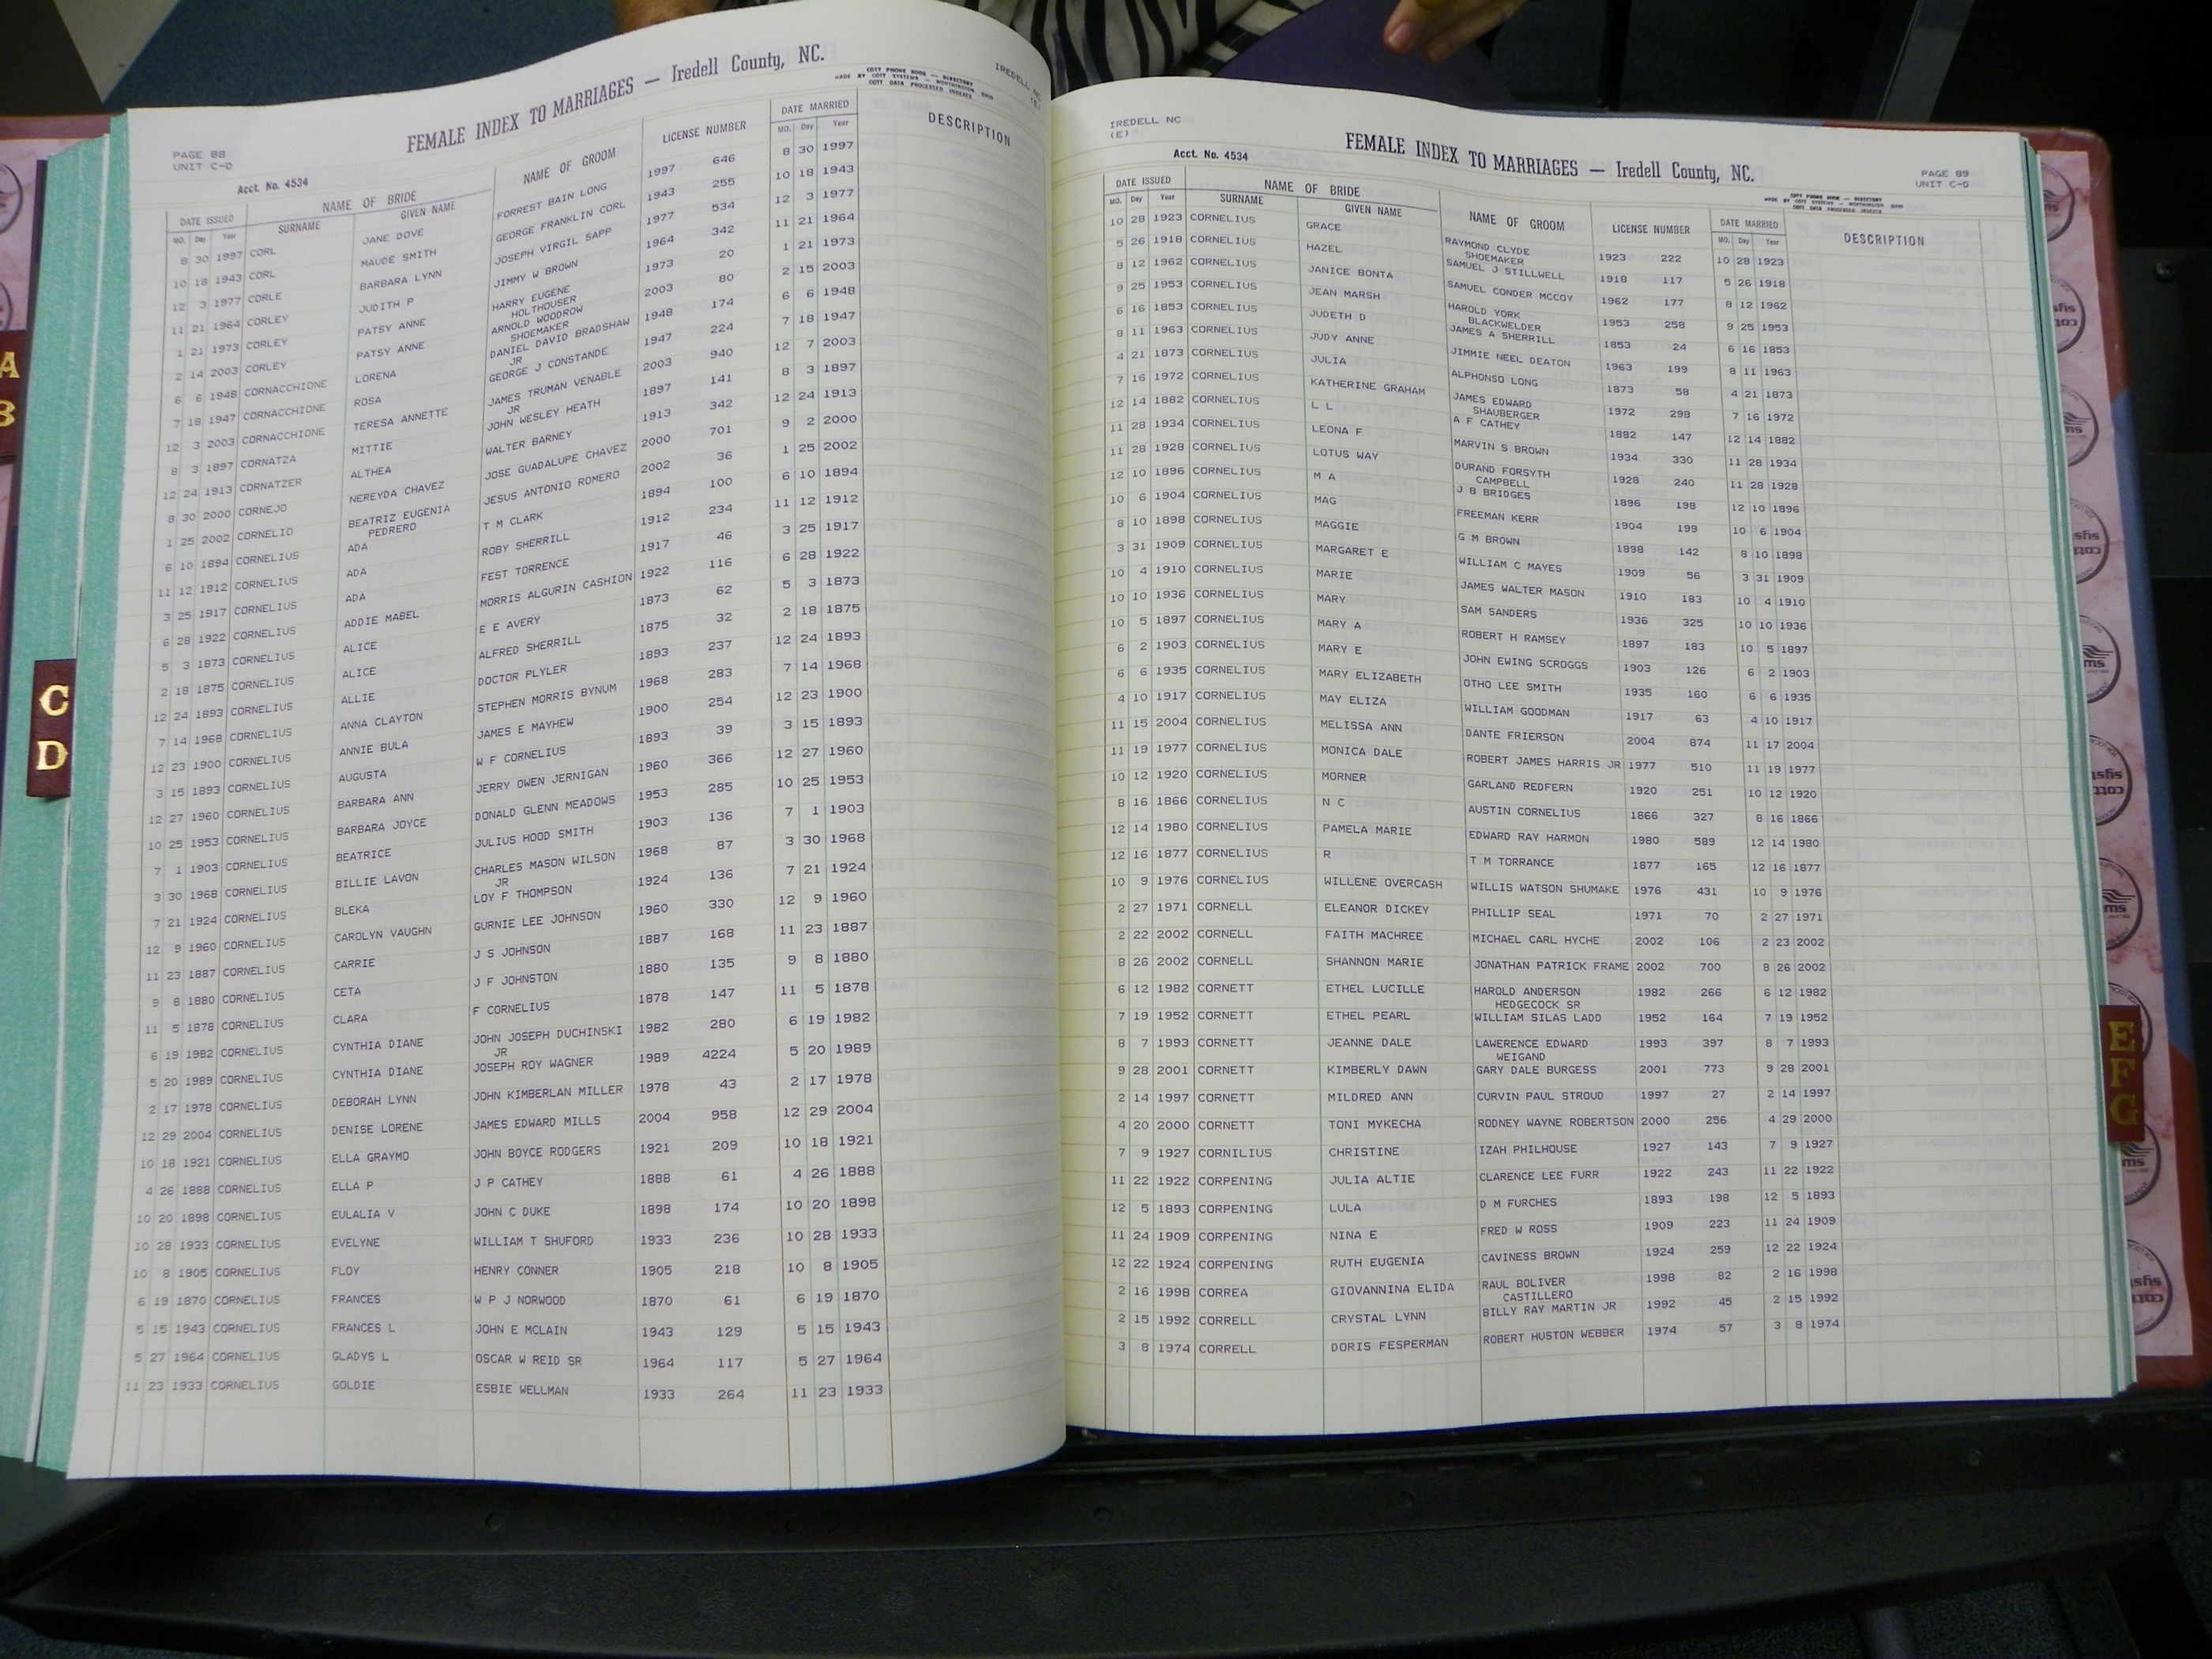 IREDELL NC
(E)
FEMALE INDEX TO MARRIAGES — Iredell County, NC.
COTT PHONE BOOK — DIRECTORY
MADE BY COTT SYSTEMS — WORTHINGTON, OHIO
COTT DATA PROCESSED INDEXES
PAGE 88
UNIT C-D
Acct. No. 4534
DATE ISSUED NAME OF BRIDE NAME OF GROOM LICENSE NUMBER DATE MARRIED DESCRIPTION
MO. Day Year SURNAME GIVEN NAME MO. Day Year
8 30 1997 CORL JANE DOVE FORREST BAIN LONG 1997 646 8 30 1997
10 18 1943 CORL MAUDE SMITH GEORGE FRANKLIN CORL 1943 255 10 18 1943
12 3 1977 CORLE BARBARA LYNN JOSEPH VIRGIL SAPP 1977 534 12 3 1977
11 21 1964 CORLEY JUDITH P JIMMY W BROWN 1964 342 11 21 1964
1 21 1973 CORLEY PATSY ANNE HARRY EUGENE 1973 20 1 21 1973
HOLTHOUSER
2 14 2003 CORLEY PATSY ANNE ARNOLD WOODROW 2003 80 2 15 2003
SHOEMAKER
6 6 1948 CORNACCHIONE LORENA DANIEL DAVID BRADSHAW 1948 174 6 6 1948
JR
7 18 1947 CORNACCHIONE ROSA GEORGE J CONSTANDE 1947 224 7 18 1947
12 3 2003 CORNACCHIONE TERESA ANNETTE JAMES TRUMAN VENABLE 2003 940 12 7 2003
JR
8 3 1897 CORNATZA MITTIE JOHN WESLEY HEATH 1897 141 8 3 1897
12 24 1913 CORNATZER ALTHEA WALTER BARNEY 1913 342 12 24 1913
8 30 2000 CORNEJO NEREYDA CHAVEZ JOSE GUADALUPE CHAVEZ 2000 701 9 2 2000
1 25 2002 CORNELIO BEATRIZ EUGENIA JESUS ANTONIO ROMERO 2002 36 1 25 2002
PEDRERO
6 10 1894 CORNELIUS ADA T M CLARK 1894 100 6 10 1894
11 12 1912 CORNELIUS ADA ROBY SHERRILL 1912 234 11 12 1912
3 25 1917 CORNELIUS ADA FEST TORRENCE 1917 46 3 25 1917
6 28 1922 CORNELIUS ADDIE MABEL MORRIS ALGURIN CASHION 1922 116 6 28 1922
5 3 1873 CORNELIUS ALICE E E AVERY 1873 62 5 3 1873
2 18 1875 CORNELIUS ALICE ALFRED SHERRILL 1875 32 2 18 1875
12 24 1893 CORNELIUS ALLIE DOCTOR PLYLER 1893 237 12 24 1893
7 14 1968 CORNELIUS ANNA CLAYTON STEPHEN MORRIS BYNUM 1968 283 7 14 1968
12 23 1900 CORNELIUS ANNIE BULA JAMES E MAYHEW 1900 254 12 23 1900
3 15 1893 CORNELIUS AUGUSTA W F CORNELIUS 1893 39 3 15 1893
12 27 1960 CORNELIUS BARBARA ANN JERRY OWEN JERNIGAN 1960 366 12 27 1960
10 25 1953 CORNELIUS BARBARA JOYCE DONALD GLENN MEADOWS 1953 285 10 25 1953
7 1 1903 CORNELIUS BEATRICE JULIUS HOOD SMITH 1903 136 7 1 1903
3 30 1968 CORNELIUS BILLIE LAVON CHARLES MASON WILSON 1968 87 3 30 1968
JR
7 21 1924 CORNELIUS BLEKA LOY F THOMPSON 1924 136 7 21 1924
12 9 1960 CORNELIUS CAROLYN VAUGHN GURNIE LEE JOHNSON 1960 330 12 9 1960
11 23 1887 CORNELIUS CARRIE J S JOHNSON 1887 168 11 23 1887
9 8 1880 CORNELIUS CETA J F JOHNSTON 1880 135 9 8 1880
11 5 1878 CORNELIUS CLARA F CORNELIUS 1878 147 11 5 1878
6 19 1982 CORNELIUS CYNTHIA DIANE JOHN JOSEPH DUCHINSKI 1982 280 6 19 1982
JR
5 20 1989 CORNELIUS CYNTHIA DIANE JOSEPH ROY WAGNER 1989 4224 5 20 1989
2 17 1978 CORNELIUS DEBORAH LYNN JOHN KIMBERLAN MILLER 1978 43 2 17 1978
12 29 2004 CORNELIUS DENISE LORENE JAMES EDWARD MILLS 2004 958 12 29 2004
10 18 1921 CORNELIUS ELLA GRAYMO JOHN BOYCE RODGERS 1921 209 10 18 1921
4 26 1888 CORNELIUS ELLA P J P CATHEY 1888 61 4 26 1888
10 20 1898 CORNELIUS EULALIA V JOHN C DUKE 1898 174 10 20 1898
10 28 1933 CORNELIUS EVELYNE WILLIAM T SHUFORD 1933 236 10 28 1933
10 8 1905 CORNELIUS FLOY HENRY CONNER 1905 218 10 8 1905
6 19 1870 CORNELIUS FRANCES W P J NORWOOD 1870 61 6 19 1870
5 15 1943 CORNELIUS FRANCES L JOHN E MCLAIN 1943 129 5 15 1943
5 27 1964 CORNELIUS GLADYS L OSCAR W REID SR 1964 117 5 27 1964
11 23 1933 CORNELIUS GOLDIE ESBIE WELLMAN 1933 264 11 23 1933
IREDELL NC
(E)
Acct. No. 4534
FEMALE INDEX TO MARRIAGES — Iredell County, NC.
PAGE 89
UNIT C-D
COTT PHONE BOOK — DIRECTORY
MADE BY COTT SYSTEMS — WORTHINGTON, OHIO
COTT DATA PROCESSED INDEXES
DATE ISSUED NAME OF BRIDE NAME OF GROOM LICENSE NUMBER DATE MARRIED DESCRIPTION
MO. Day Year SURNAME GIVEN NAME MO. Day Year
10 28 1923 CORNELIUS GRACE RAYMOND CLYDE 1923 222 10 28 1923
SHOEMAKER
5 26 1918 CORNELIUS HAZEL SAMUEL J STILLWELL 1918 117 5 26 1918
8 12 1962 CORNELIUS JANICE BONTA SAMUEL CONDER MCCOY 1962 177 8 12 1962
9 25 1953 CORNELIUS JEAN MARSH HAROLD YORK 1953 258 9 25 1953
BLACKWELDER
6 16 1853 CORNELIUS JUDETH D JAMES A SHERRILL 1853 24 6 16 1853
8 11 1963 CORNELIUS JUDY ANNE JIMMIE NEEL DEATON 1963 199 8 11 1963
4 21 1873 CORNELIUS JULIA ALPHONSO LONG 1873 58 4 21 1873
7 16 1972 CORNELIUS KATHERINE GRAHAM JAMES EDWARD 1972 298 7 16 1972
SHAUBERGER
12 14 1882 CORNELIUS L L A F CATHEY 1882 147 12 14 1882
11 28 1934 CORNELIUS LEONA F MARVIN S BROWN 1934 330 11 28 1934
11 28 1928 CORNELIUS LOTUS WAY DURAND FORSYTH 1928 240 11 28 1928
CAMPBELL
12 10 1896 CORNELIUS M A J B BRIDGES 1896 198 12 10 1896
10 6 1904 CORNELIUS MAG FREEMAN KERR 1904 199 10 6 1904
8 10 1898 CORNELIUS MAGGIE G M BROWN 1898 142 8 10 1898
3 31 1909 CORNELIUS MARGARET E WILLIAM C MAYES 1909 56 3 31 1909
10 4 1910 CORNELIUS MARIE JAMES WALTER MASON 1910 183 10 4 1910
10 10 1936 CORNELIUS MARY SAM SANDERS 1936 325 10 10 1936
10 5 1897 CORNELIUS MARY A ROBERT H RAMSEY 1897 183 10 5 1897
6 2 1903 CORNELIUS MARY E JOHN EWING SCROGGS 1903 126 6 2 1903
6 6 1935 CORNELIUS MARY ELIZABETH OTHO LEE SMITH 1935 160 6 6 1935
4 10 1917 CORNELIUS MAY ELIZA WILLIAM GOODMAN 1917 63 4 10 1917
11 15 2004 CORNELIUS MELISSA ANN DANTE FRIERSON 2004 874 11 17 2004
11 19 1977 CORNELIUS MONICA DALE ROBERT JAMES HARRIS JR 1977 510 11 19 1977
10 12 1920 CORNELIUS MORNER GARLAND REDFERN 1920 251 10 12 1920
8 16 1866 CORNELIUS N C AUSTIN CORNELIUS 1866 327 8 16 1866
12 14 1980 CORNELIUS PAMELA MARIE EDWARD RAY HARMON 1980 589 12 14 1980
12 16 1877 CORNELIUS R T M TORRANCE 1877 165 12 16 1877
10 9 1976 CORNELIUS WILLENE OVERCASH WILLIS WATSON SHUMAKE 1976 431 10 9 1976
2 27 1971 CORNELL ELEANOR DICKEY PHILLIP SEAL 1971 70 2 27 1971
2 22 2002 CORNELL FAITH MACHREE MICHAEL CARL HYCHE 2002 106 2 23 2002
8 26 2002 CORNELL SHANNON MARIE JONATHAN PATRICK FRAME 2002 700 8 26 2002
6 12 1982 CORNETT ETHEL LUCILLE HAROLD ANDERSON 1982 266 6 12 1982
HEDGECOCK SR
7 19 1952 CORNETT ETHEL PEARL WILLIAM SILAS LADD 1952 164 7 19 1952
8 7 1993 CORNETT JEANNE DALE LAWERENCE EDWARD 1993 397 8 7 1993
WEIGAND
9 28 2001 CORNETT KIMBERLY DAWN GARY DALE BURGESS 2001 773 9 28 2001
2 14 1997 CORNETT MILDRED ANN CURVIN PAUL STROUD 1997 27 2 14 1997
4 20 2000 CORNETT TONI MYKECHA RODNEY WAYNE ROBERTSON 2000 256 4 29 2000
7 9 1927 CORNILIUS CHRISTINE IZAH PHILHOUSE 1927 143 7 9 1927
11 22 1922 CORPENING JULIA ALTIE CLARENCE LEE FURR 1922 243 11 22 1922
12 5 1893 CORPENING LULA D M FURCHES 1893 198 12 5 1893
11 24 1909 CORPENING NINA E FRED W ROSS 1909 223 11 24 1909
12 22 1924 CORPENING RUTH EUGENIA CAVINESS BROWN 1924 259 12 22 1924
2 16 1998 CORREA GIOVANNINA ELIDA RAUL BOLIVER 1998 82 2 16 1998
CASTILLERO
2 15 1992 CORRELL CRYSTAL LYNN BILLY RAY MARTIN JR 1992 45 2 15 1992
3 8 1974 CORRELL DORIS FESPERMAN ROBERT HUSTON WEBBER 1974 57 3 8 1974
A
B
C
D
E
F
G